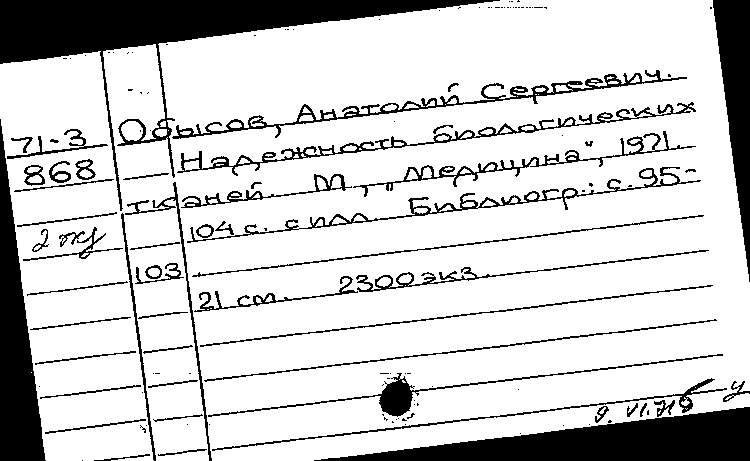 Обысов, Анатолий Сергеевич.
71-3
868 Надежность биологических
тканей. М, „Медицина", 1971.
2 экз 104 с. с илл. Библиогр.: с. 95-
103.
21 см. 2300 экз.
9. VI.71